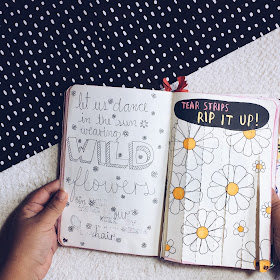 let us dance
in the sun
wearing
WILD
flowers
in
our
hair
TEAR STRIPS
RIP IT UP!